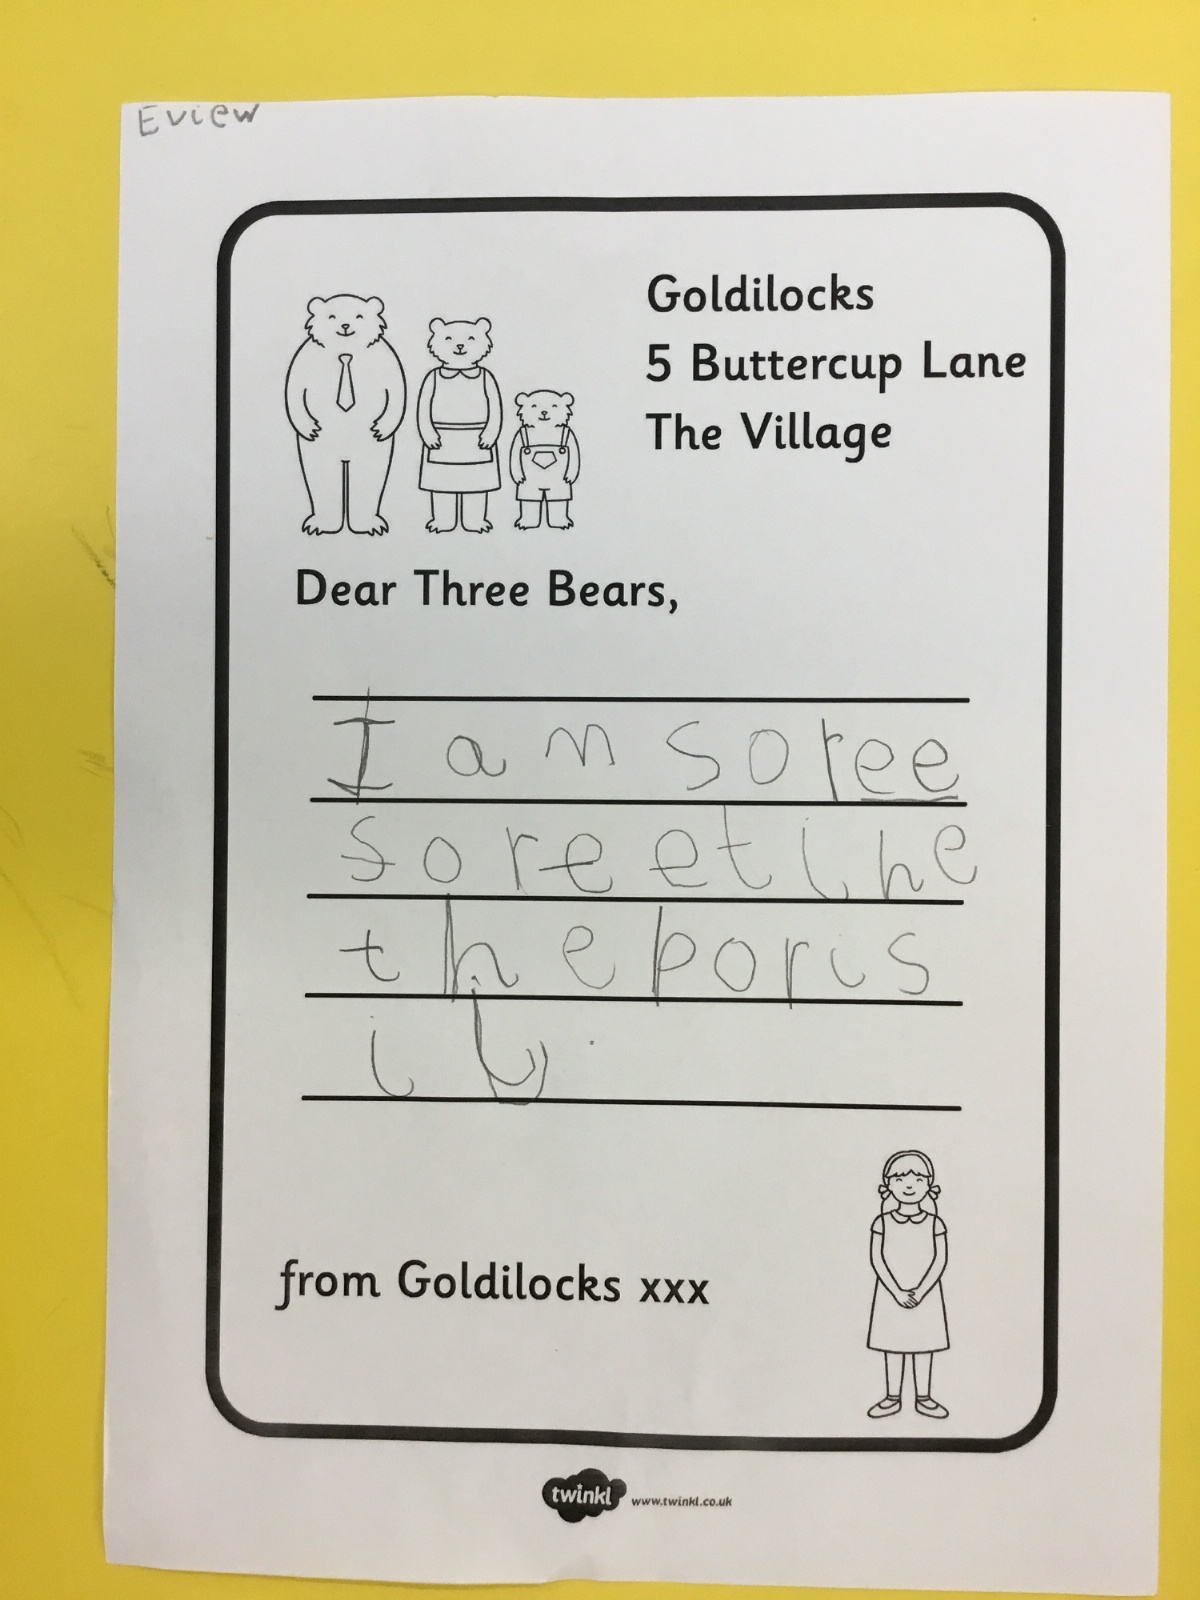 Eview
Goldilocks
5 Buttercup Lane
The Village
Dear Three Bears,
I am soree
soree etihe
the poris
ib.
from Goldilocks xxx
twinkl www.twinkl.co.uk